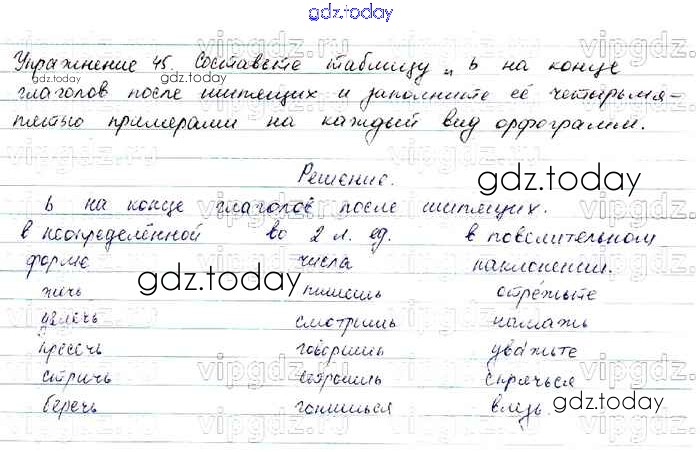 gdz.today
Упражнение 45. Составьте таблицу „ ь на конце
глаголов после шипящих и заполните её четырьмя-
пятью примерами на каждый вид орфограммы.
gdz.today
Решение.
gdz.today
ь на конце глаголов после шипящих.
в неопределённой во 2 л. ед. в повелительном
форме числа наклонении.
gdz.today
жечь пишешь отрежьте
смотришь намажь
пресечь говоришь уважьте
стричь спрячься
беречь гонишься влезь.
gdz.today
vipgdz.ru